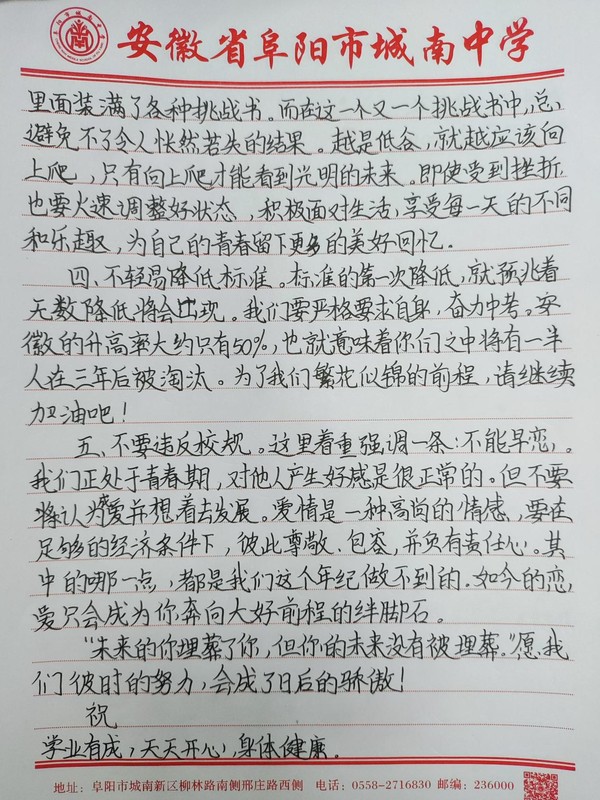 安徽省阜阳市城南中学
里面装满了各种挑战书。而在这一个又一个挑战书中,总
避免不了令人怅然若失的结果。越是低谷,就越应该向
上爬,只有向上爬才能看到光明的未来。即使受到挫折,
也要火速调整好状态,积极面对生活,享受每一天的不同
和乐趣,为自己的青春留下更多的美好回忆.
四、不轻易降低标准。标准的第一次降低,就预兆着
无数降低将会出现。我们要严格要求自身,奋力中考。安
徽的升高率大约只有50%,也就意味着你们之中将有一半
人在三年后被淘汰。为了我们繁花似锦的前程,请继续
加油吧!
五、不要违反校规。这里着重强调一条:不能早恋。
我们正处于青春期,对他人产生好感是很正常的。但不要
将认为爱并想着去发展。爱情是一种高尚的情感,要在
足够的经济条件下,彼此尊敬、包容,并负有责任心。其
中的哪一点,都是我们这个年纪做不到的.如今的恋
爱只会成为你奔向大好前程的绊脚石。
“未来的你埋葬了你,但你的未来没有被埋葬。”愿我
们彼时的努力,会成了日后的骄傲!
祝
学业有成,天天开心,身体健康。
地址:阜阳市城南新区柳林路南侧邢庄路西侧 电话:0558-2716830 邮编:236000